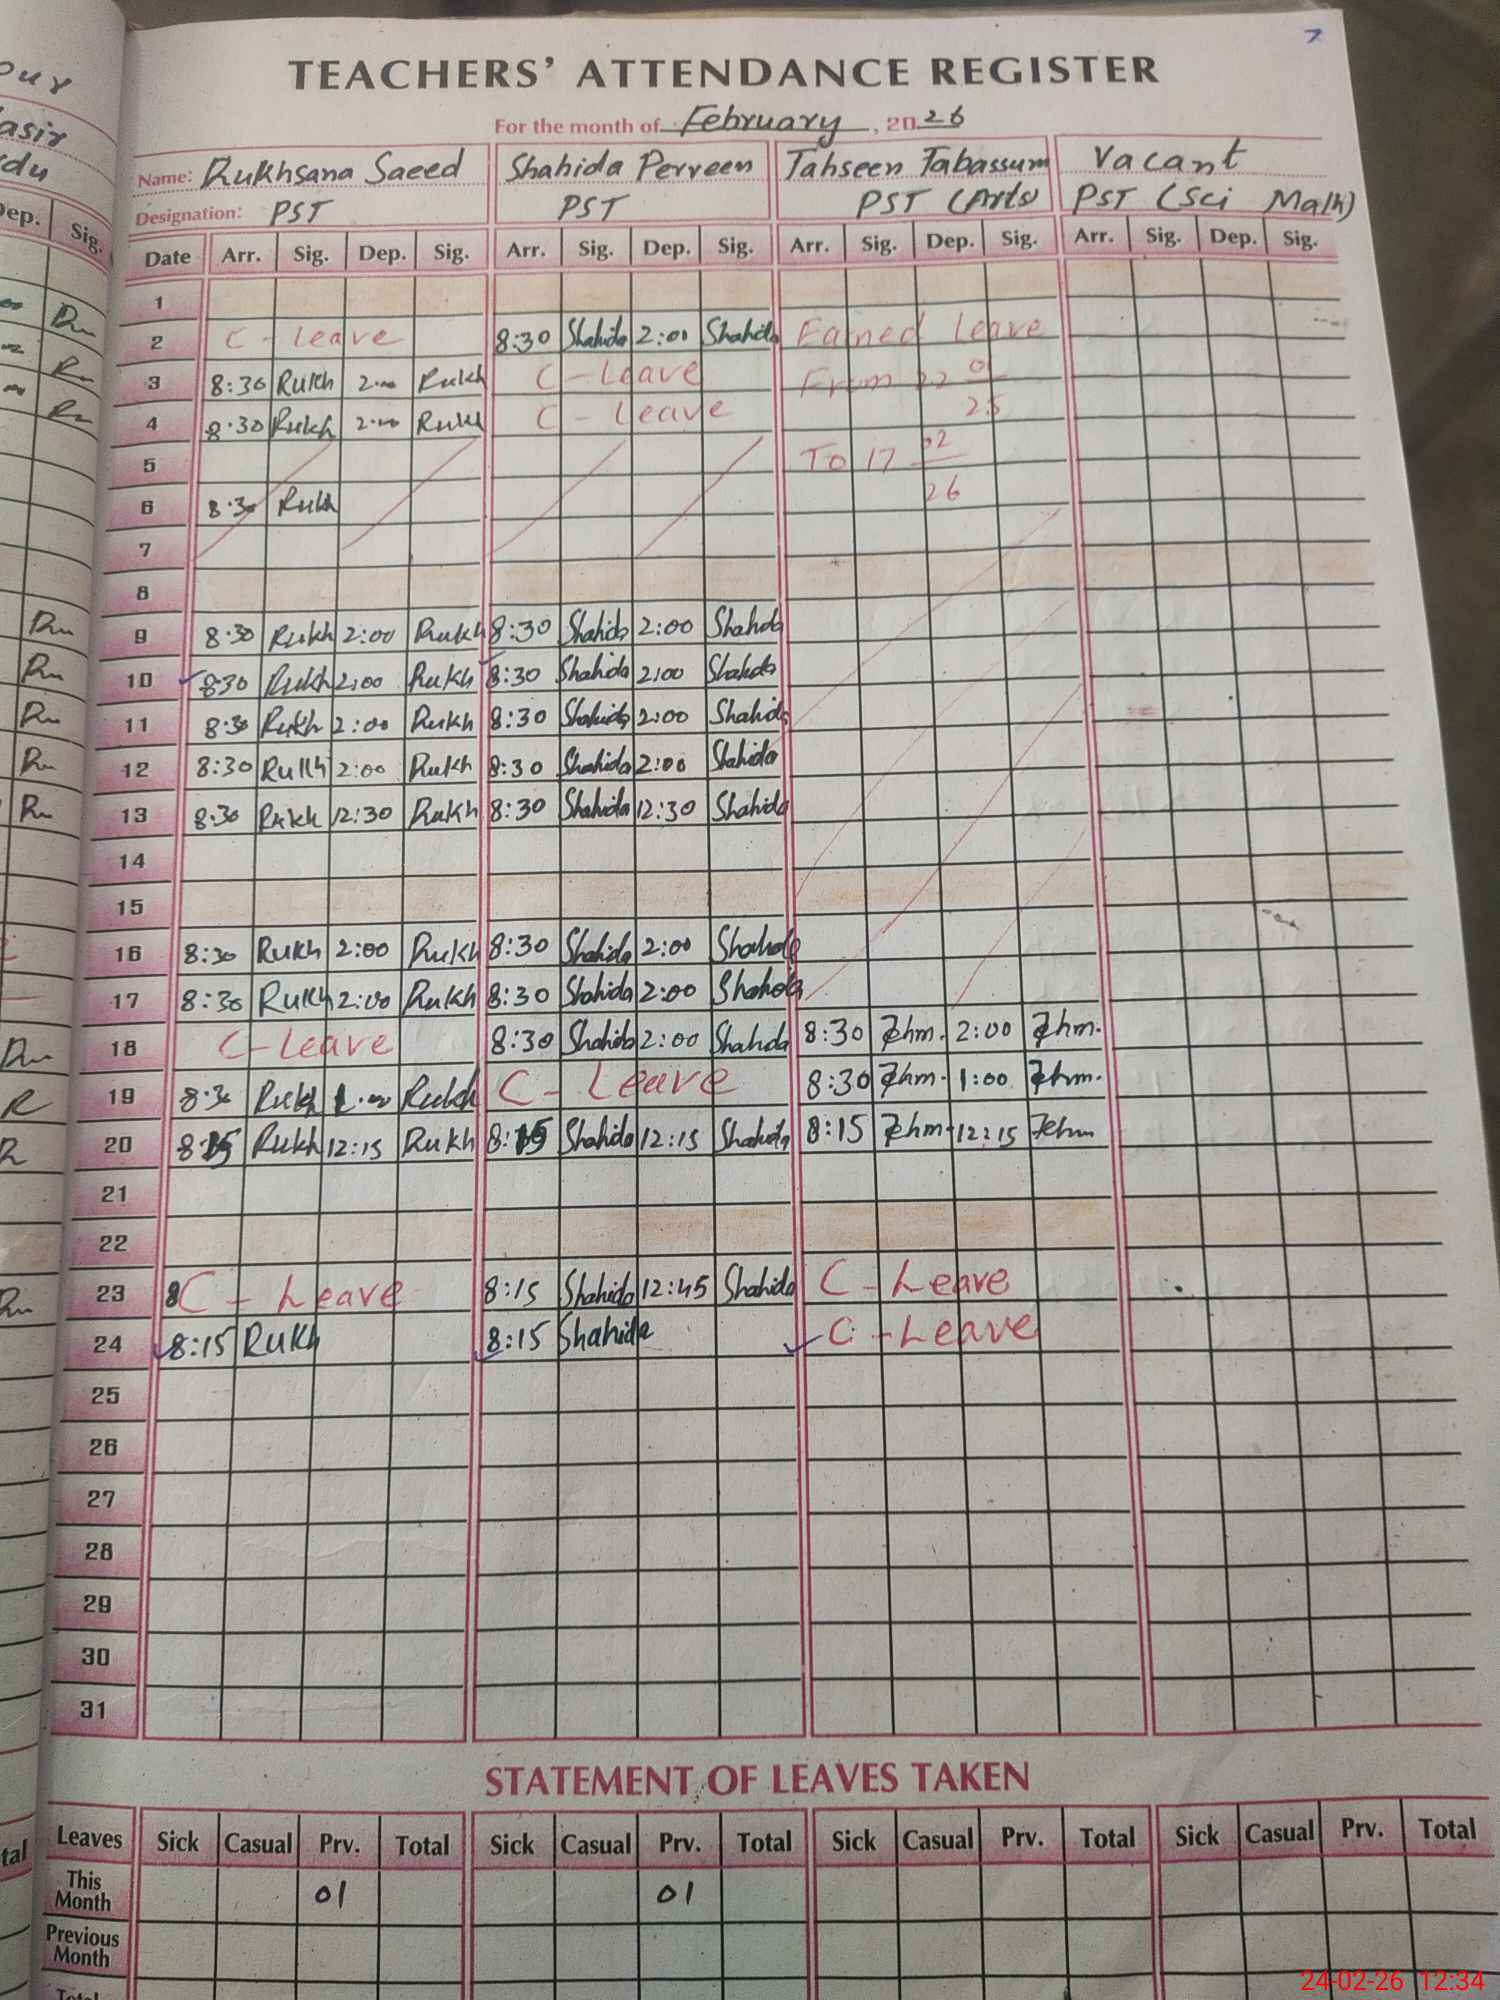 7
TEACHERS' ATTENDANCE REGISTER
For the month of February, 2026
Name: Rukhsana Saeed Shahida Perveen Tahseen Tabassum Vacant
Designation: PST PST PST (Arts) PST (Sci Math)
Date Arr. Sig. Dep. Sig. Arr. Sig. Dep. Sig. Arr. Sig. Dep. Sig. Arr. Sig. Dep. Sig.
1
2 C-Leave 8:30 Shahida 2:00 Shahida Earned Leave
3 8:30 Rukh 2:00 Rukh C-Leave From 22
4 8:30 Rukh 2:00 Rukh C-Leave 25
5 To 17 02
6 8:30 Rukh 26
7
8
9 8:30 Rukh 2:00 Rukh 8:30 Shahida 2:00 Shahida
10 8:30 Rukh 2:00 Rukh 8:30 Shahida 2:00 Shahida
11 8:30 Rukh 2:00 Rukh 8:30 Shahida 2:00 Shahida
12 8:30 Rukh 2:00 Rukh 8:30 Shahida 2:00 Shahida
13 8:30 Rukh 12:30 Rukh 8:30 Shahida 12:30 Shahida
14
15
16 8:30 Rukh 2:00 Rukh 8:30 Shahida 2:00 Shahida
17 8:30 Rukh 2:00 Rukh 8:30 Shahida 2:00 Shahida
18 C-Leave 8:30 Shahida 2:00 Shahida 8:30 2:00
19 8:30 Rukh 1:00 Rukh C-Leave 8:30 1:00
20 8:15 Rukh 12:15 Rukh 8:15 Shahida 12:15 Shahida 8:15 12:15
21
22
23 C-Leave 8:15 Shahida 12:45 Shahida C-Leave
24 8:15 Rukh 8:15 Shahida C-Leave
25
26
27
28
29
30
31
STATEMENT OF LEAVES TAKEN
Leaves Sick Casual Prv. Total Sick Casual Prv. Total Sick Casual Prv. Total Sick Casual Prv. Total
This Month 01 01
Previous Month
24-02-26 12:34